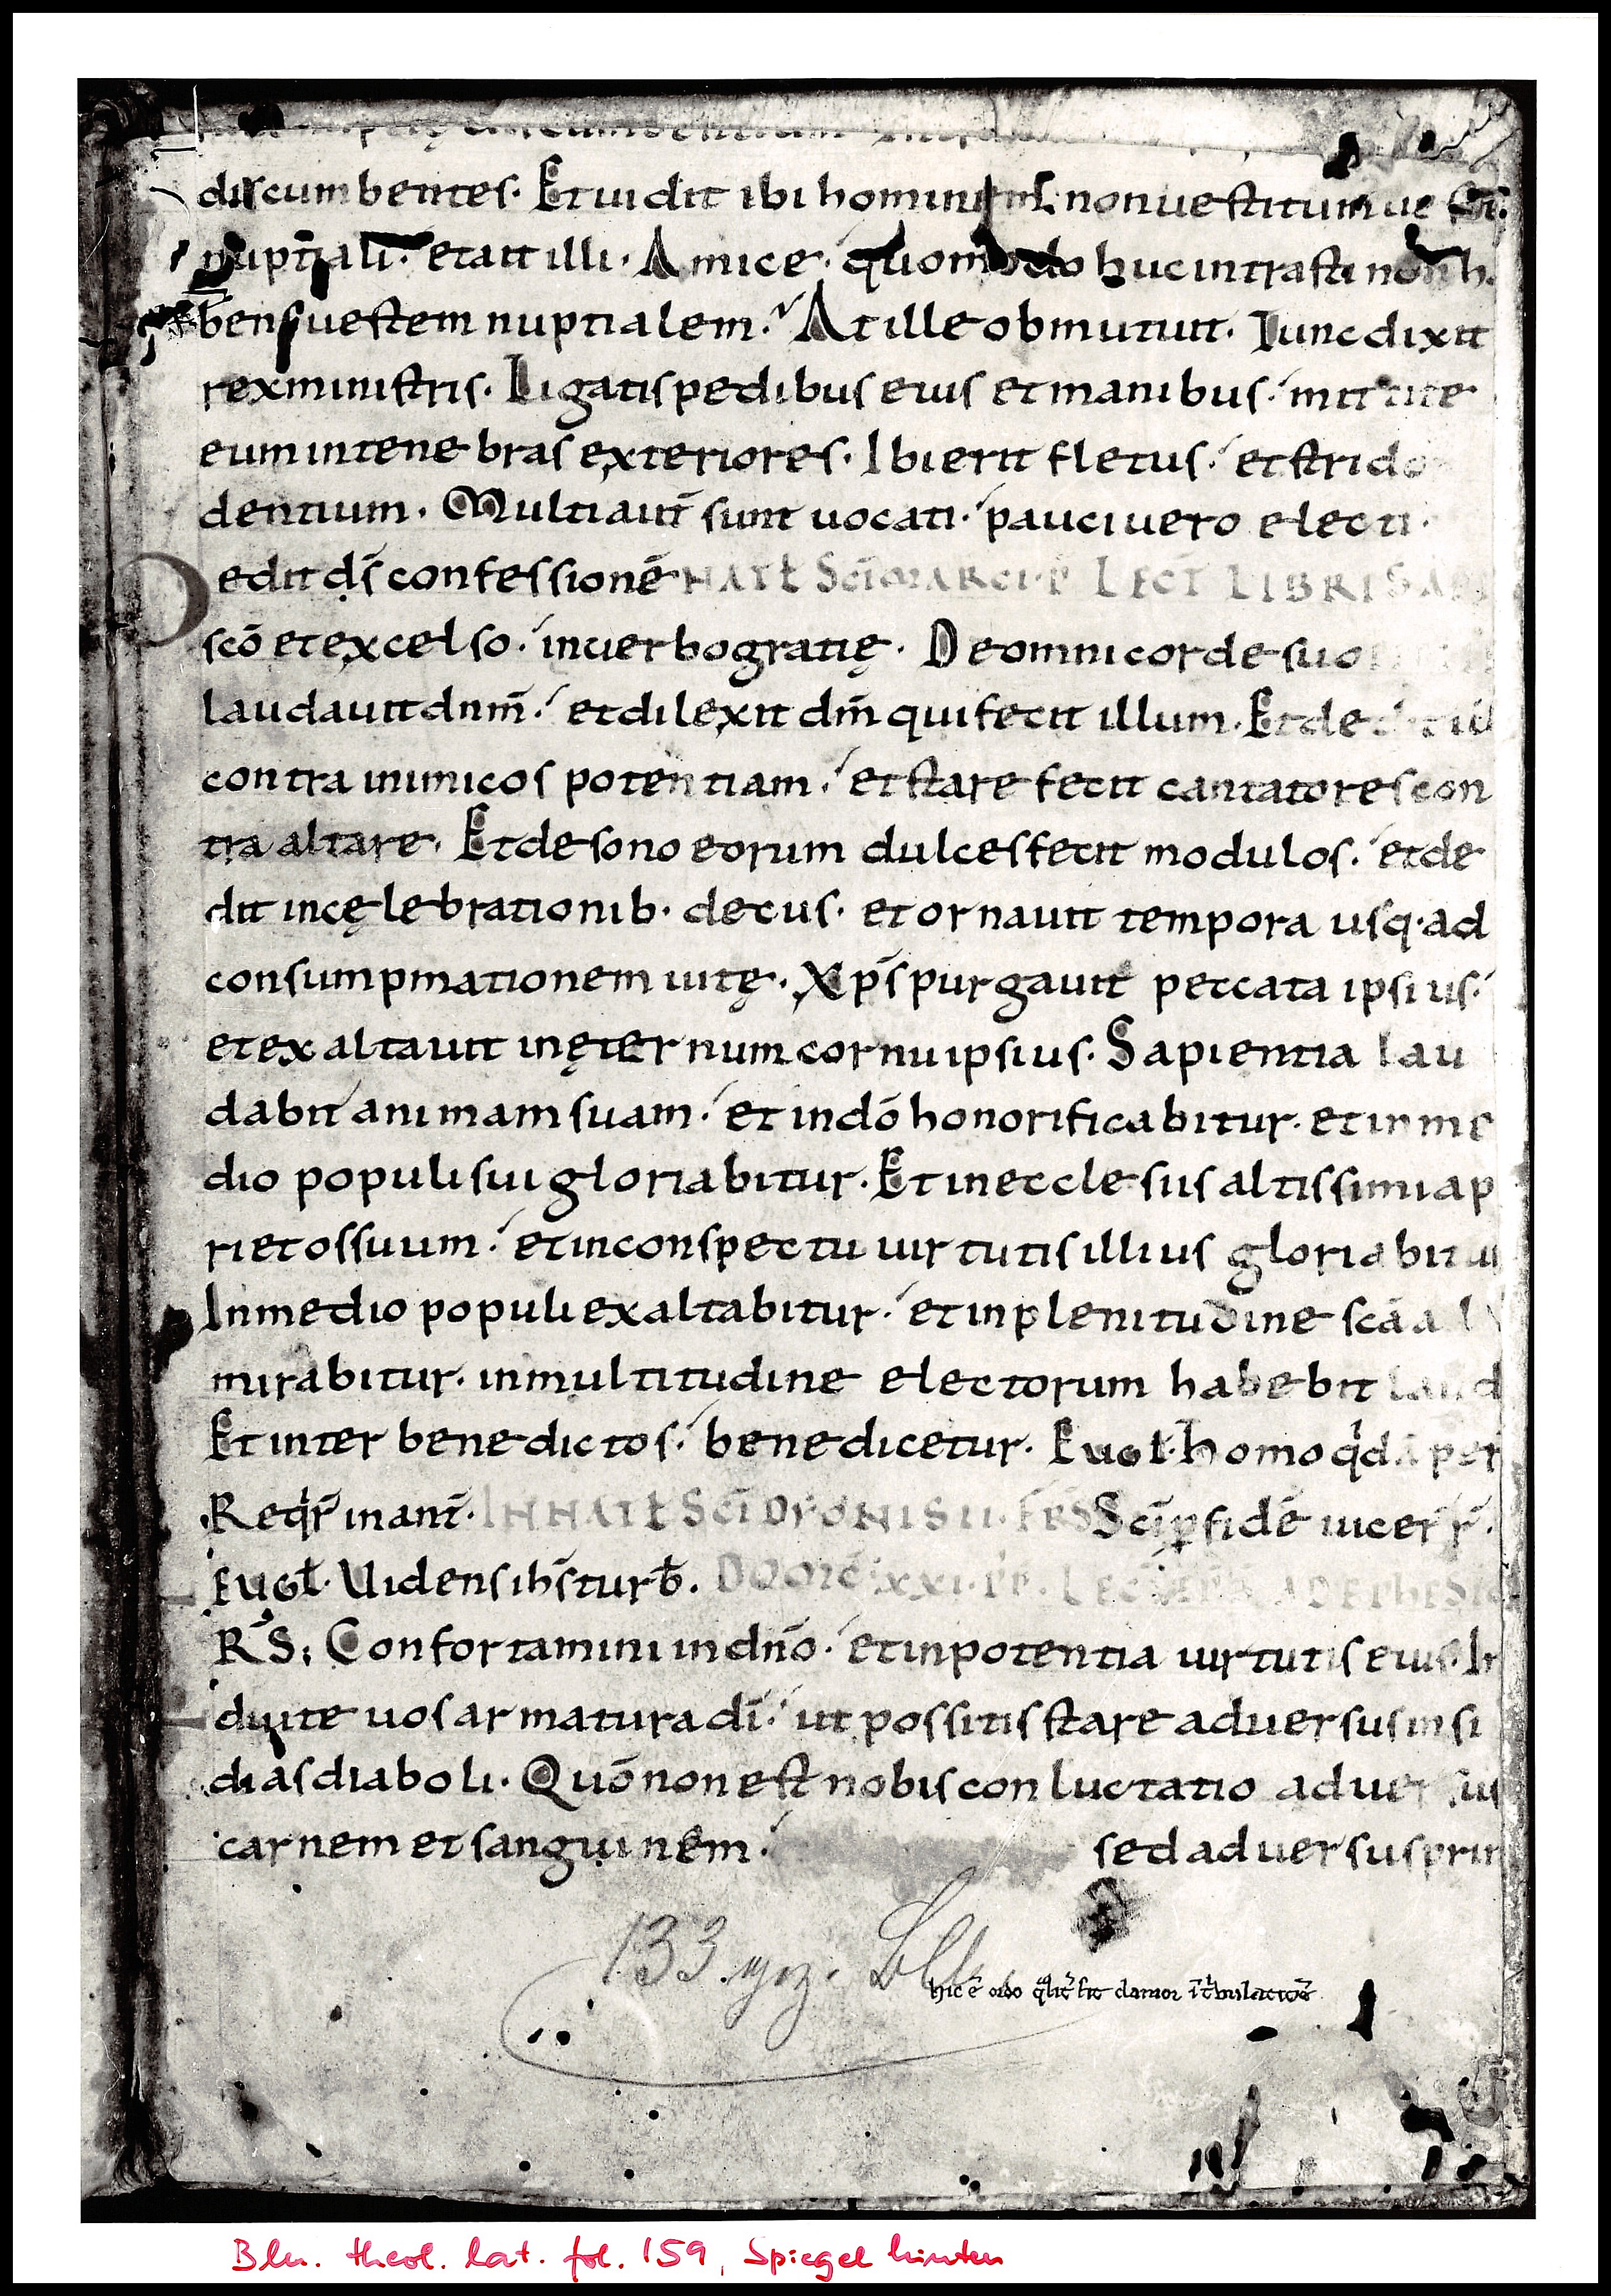 discumbentes. Et uidit ibi hominem non uestitum ueste
nuptiali. et ait illi. Amice. quomodo huc intrasti non ha
bens uestem nuptialem. At ille obmutuit. Tunc dixit
rex ministris. Ligatis pedibus eius et manibus. mittite
eum in tenebras exteriores. Ibi erit fletus. et strido
dentium. Multi aut̄ sunt uocati. pauci uero electi.
Dedit d̄s confessionē NAT̄ S̄CI MARCI P̄P LECT̄ LIBRI SAP
sc̄o et excelso. in uerbo gratię. De omni corde suo
laudauit dn̄m. et dilexit dm̄ qui fecit illum. Et dedit ill
contra inimicos potentiam. et stare fecit cantatores con
tra altare. Et de sono eorum dulces fecit modulos. et de
dit in cęlebrationib. decus. et ornauit tempora usq. ad
consumpmationem uitę. Xp̄s purgauit peccata ipsius.
et exaltauit in ęternum cornu ipsius. Sapientia lau
dabit animam suam. et in dō honorificabitur. et in me
dio populi sui gloriabitur. Et in ecclesiis altissimi ap
riet os suum. et in conspectu uirtutis illius gloriabitur
In medio populi exaltabitur. et in plenitudine sc̄a a
mirabitur. in multitudine electorum habebit laud
Et inter benedictos. benedicetur. Euḡl. Homo q̇dā per
Reqr̄ in ant̄. IN NAT̄ S̄CI DYONISII. S̄ci p̄ fidē uicer̄ r̄.
Euḡl. Uidens ih̄s turb̄. DOM̄C XXI. LEC AD EPHESI
R̄S; Confortamini in dn̄o. et in potentia uirtutis eius. In
duite uos armatura dī. ut possitis stare aduersus insi
dias diaboli. Quō non est nobis conluctatio aduersus
carnem et sanguinem. sed aduersus prin
133. gez. Bll.
hic ē ordo qlit̄ fit clamor
Bln. theol. lat. fol. 159, Spiegel hinten